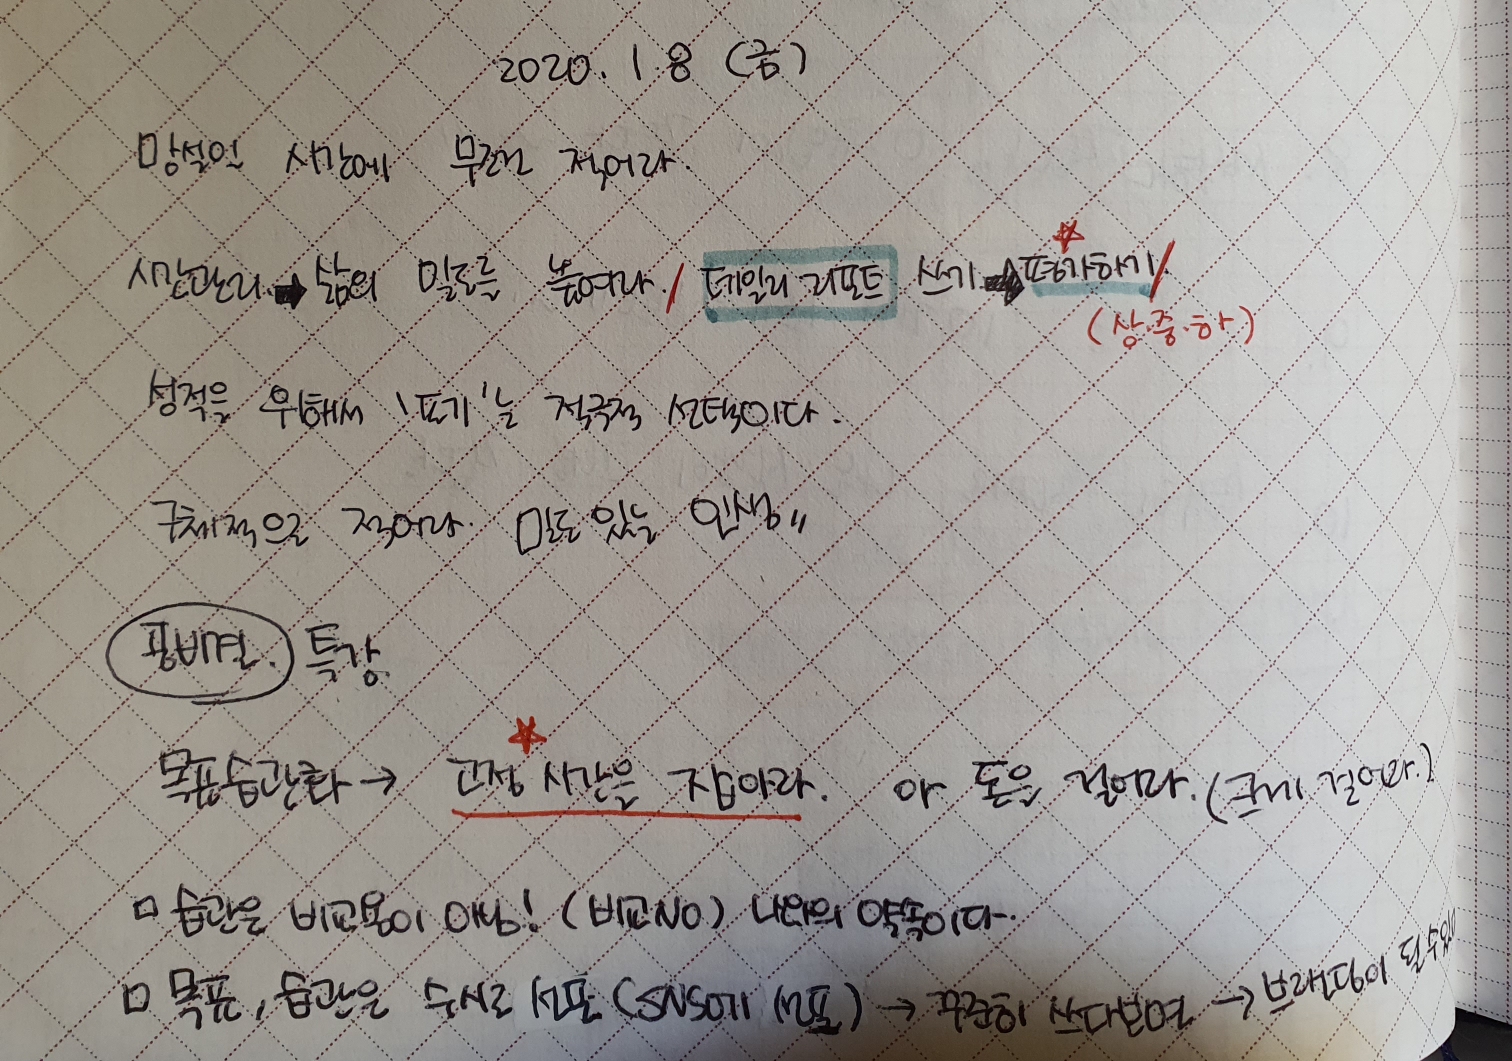 2020. 1. 8 (금)
망설인 시간에 무조건 적어라.
시간관리 → 삶의 밀도를 높여라. / 데일리 리포트 쓰기 → 평가하기 /
(상.중.하)
성적을 위해서 '포기'는 적극적 선택이다.
구체적으로 적어라 밀도있는 인생"
특강
목표습관화 → 고정 시간을 잡아라. 아 돈을 걸어라. (크게 걸어라.)
□ 습관은 비교용이 아님! (비교NO) 나와의 약속이다.
□ 목표, 습관은 수시로 선포 (SNS에 선포) → 꾸준히 쓰다보면 → 브랜딩이 될수있어